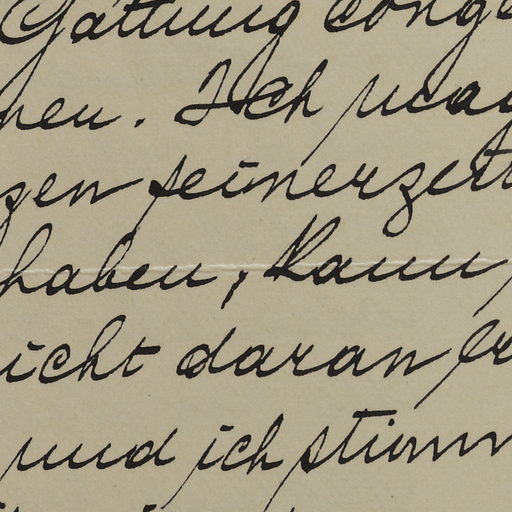 Gattung cong
nen. Ich mac
zen seinerzeit
haben, kann
icht daran er
und ich stimm